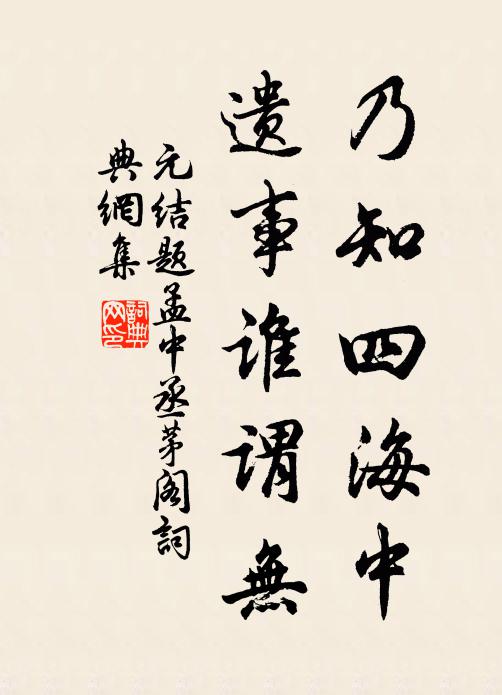 乃知四海中
遗事谁谓無
元结题孟中丞茅阁詞
典網集
詞典網印